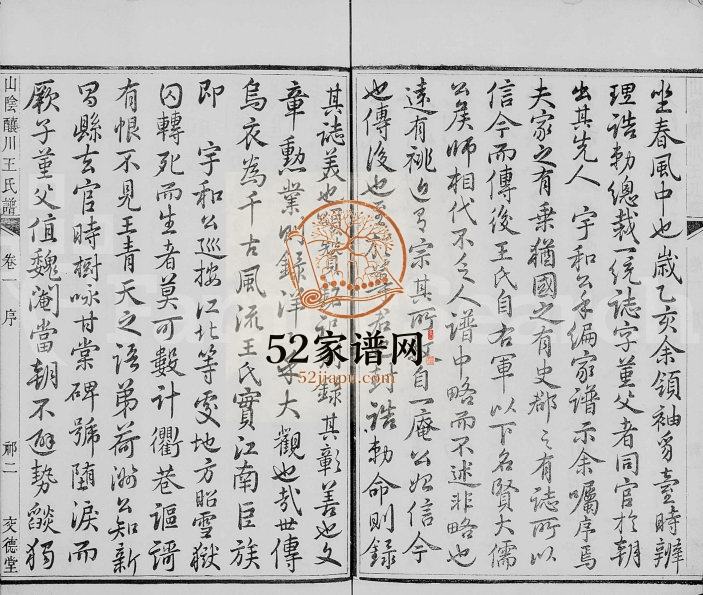 坐春風中也歲乙亥余領袖烏臺時辨
理誥勅總裁一統誌字董父者同官於朝
出其先人 宇和公手編家譜示余囑序焉
夫家之有乗猶國之有史郡之有誌所以
信今而傳後王氏自右軍以下名賢大儒
公侯師相代不乏人譜中略而不述非略也
遠有祧近有宗其所自一庵公始信今
也傳後也 誥勅命則錄
其誌義也 錄其彰善也文
章勳業則錄洋 大觀也哉世傳
烏衣為千古風流王氏實江南巨族
即 宇和公巡按江北等處地方昭雪獄
囚轉死而生者莫可數計衢巷謳謌
有恨不見王青天之語弟荷洲公知新
昌縣去官時樹咏甘棠碑號堕淚而
厥子董父值魏閹當朝不避勢燄獨
山陰釀川王氏譜 卷一 序 祁二 文德堂
52家谱网
52jiapu.com